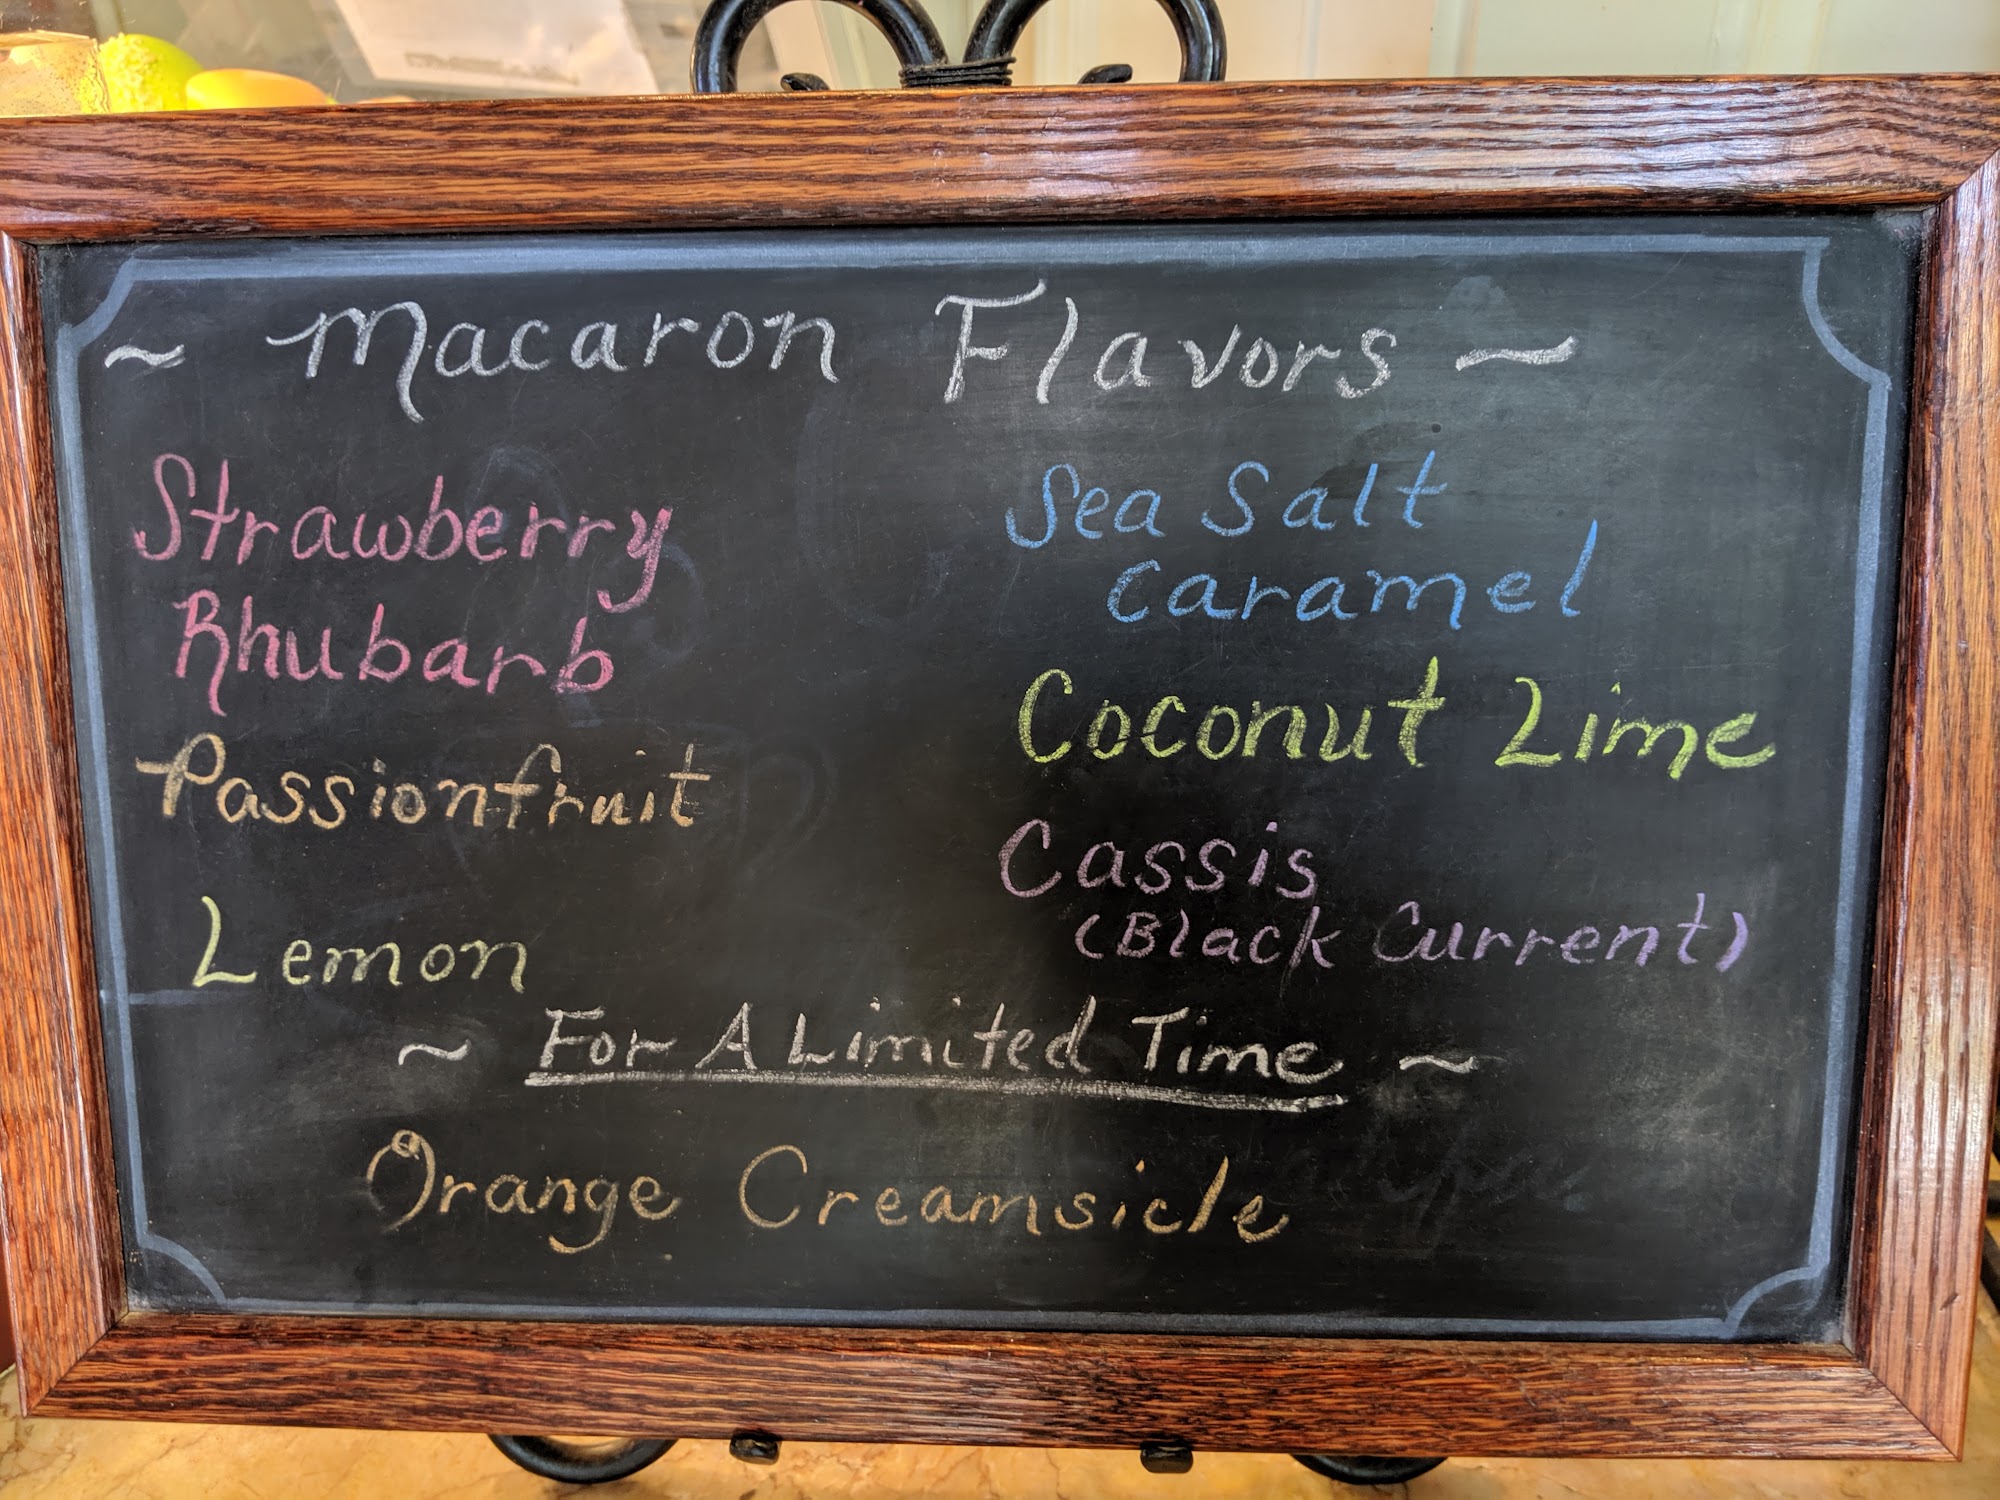 ~ Macaron Flavors ~
Strawberry
Rhubarb
Passionfruit
Lemon
Sea Salt
Caramel
Coconut Lime
Cassis
(Black Current)
~ For A Limited Time ~
Orange Creamsicle